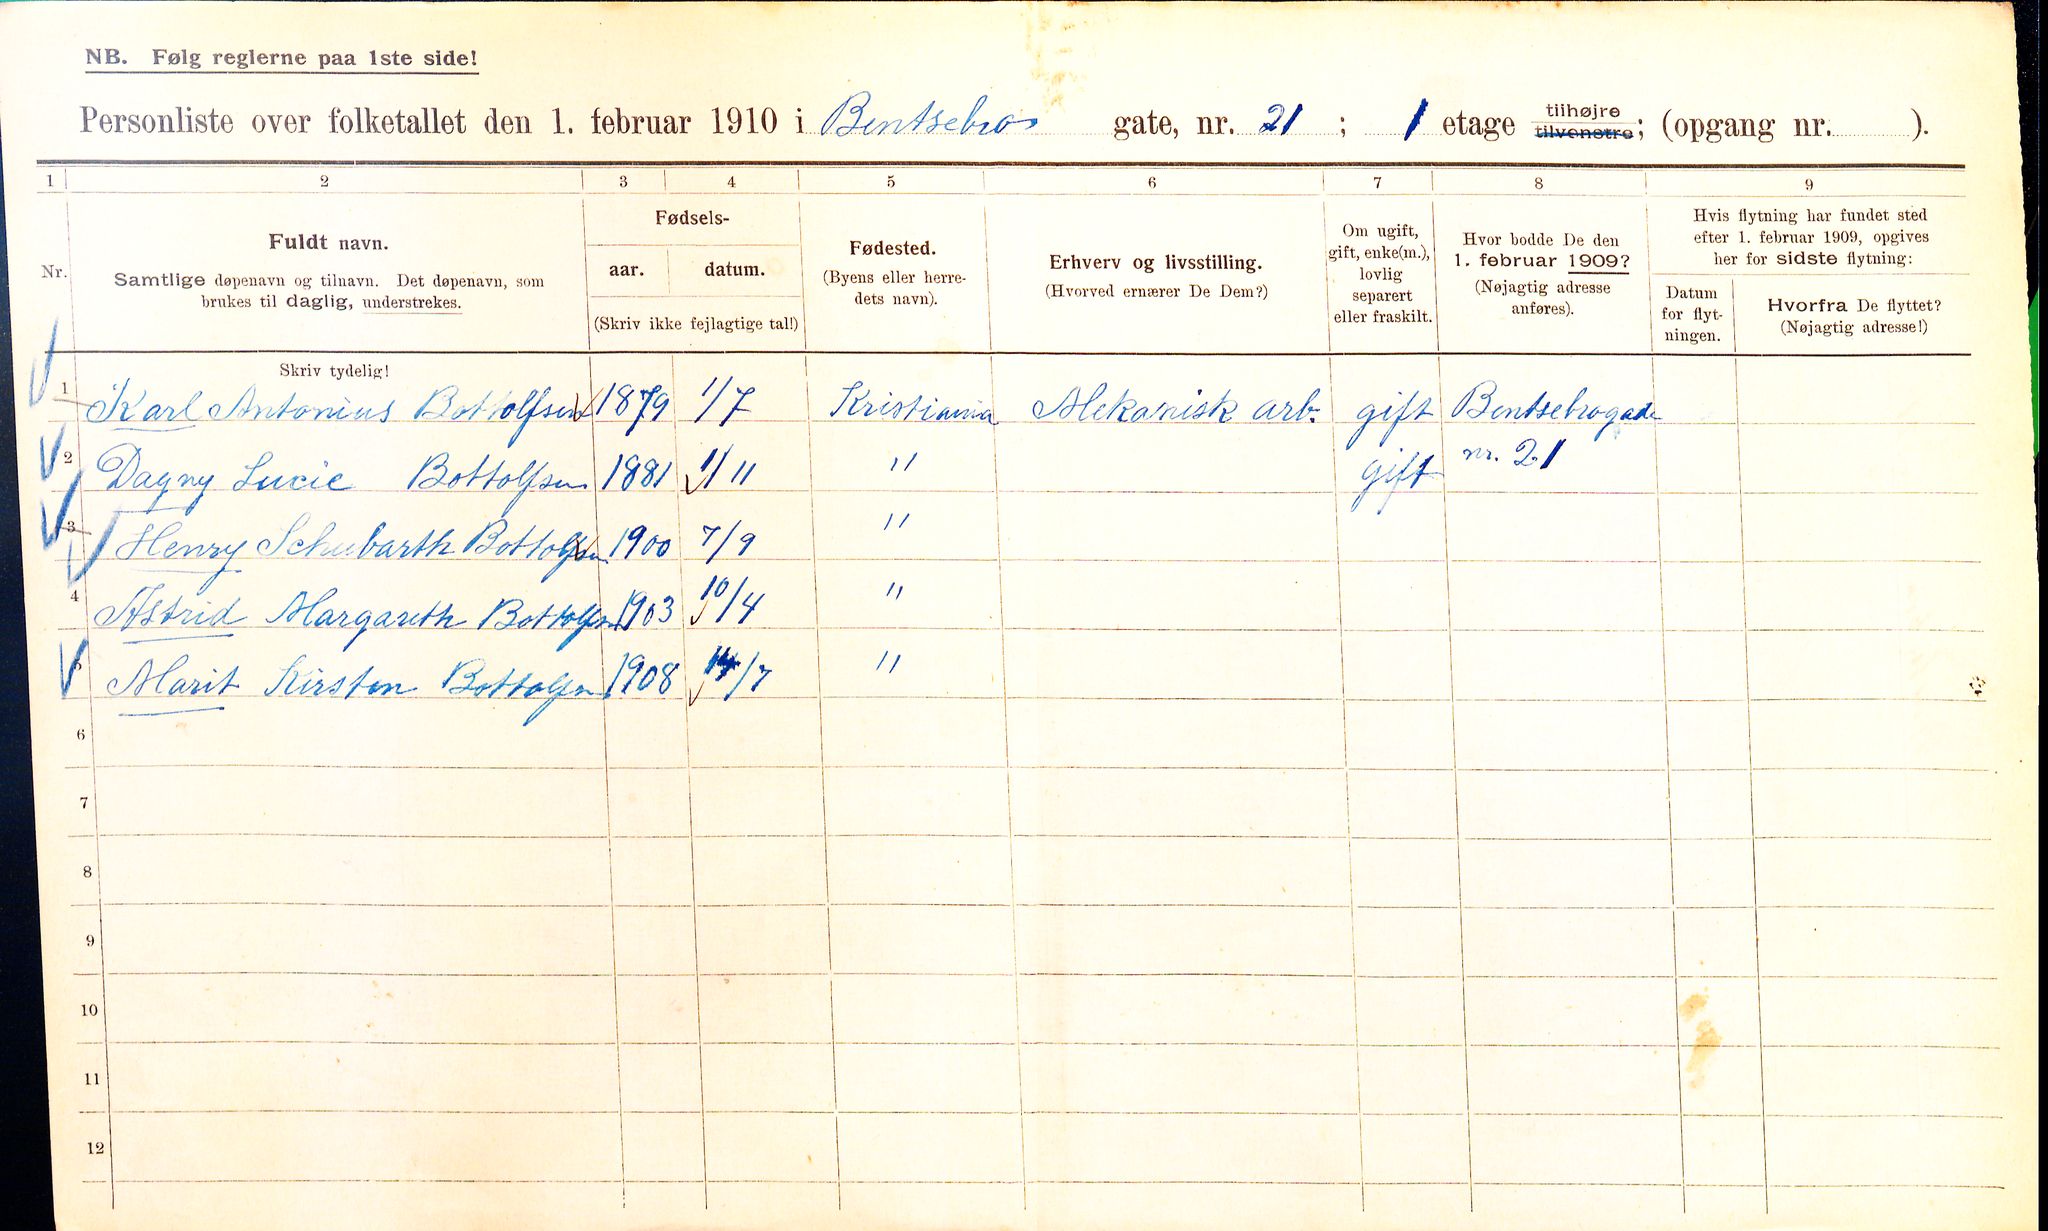 NB. Følg reglerne paa 1ste side!
Personliste over folketallet den 1. februar 1910 i Bentsebro gate, nr. 21 ; 1 etage tilhøjre tilvenstre; (opgang nr. ).
1 2 3 4 5 6 7 8 9
Nr.
Fuldt navn.
Samtlige døpenavn og tilnavn. Det døpenavn, som
brukes til daglig, understrekes.
Skriv tydelig!
Fødsels-
aar. datum.
(Skriv ikke fejlagtige tal!)
Fødested.
(Byens eller herre-
dets navn).
Erhverv og livsstilling.
(Hvorved ernærer De Dem?)
Om ugift,
gift, enke(m.),
lovlig
separert
eller fraskilt.
Hvor bodde De den
1. februar 1909?
(Nøjagtig adresse
anføres).
Hvis flytning har fundet sted
efter 1. februar 1909, opgives
her for sidste flytning:
Datum
for flyt-
ningen.
Hvorfra De flyttet?
(Nøjagtig adresse!)
1 Karl Antonius Bottolfsen 1879 1/7 Kristiania Mekanisk arb. gift Bentsebrogade
2 Dagny Lucie Bottolfsen 1881 1/11 " gift nr. 21
3 Henry Schubarth Bottolfsen 1900 7/9 "
4 Astrid Margareth Bottolfsen 1903 10/4 "
5 Marit Kirsten Bottolfsen 1908 14/7 "
6
7
8
9
10
11
12